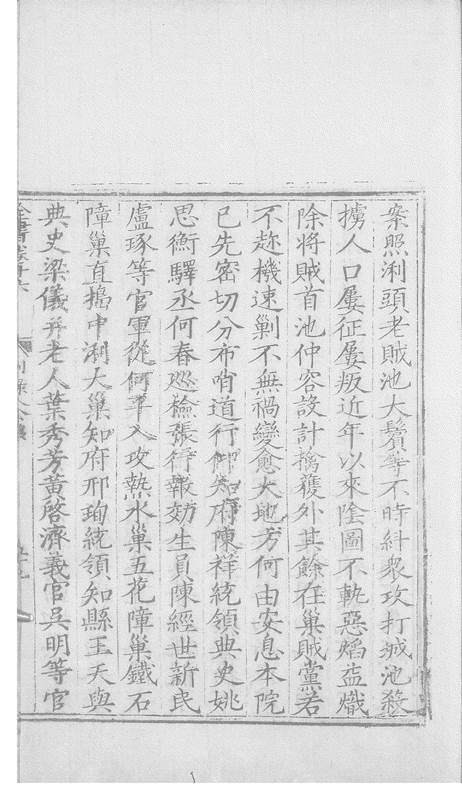 案照浰頭老賊池大鬢等不時糾衆攻打城池殺
擄人口屢征屢叛近年以來陰圖不軌惡焰益熾
除將賊首池仲容設計擒獲外其餘在巢賊黨若
不趂機速剿不無禍變愈大地方何由安息本院
已先密切分布哨道行仰知府陳祥統領典史姚
思衡驛丞何春巡檢張行報効生員陳經世新民
盧琢等官軍從何平入攻熱水巢五花障巢鐵石
障巢直搗中浰大巢知府邢珣統領知縣王天與
典史梁儀并老人葉秀芳黃啓濟義官吳明等官